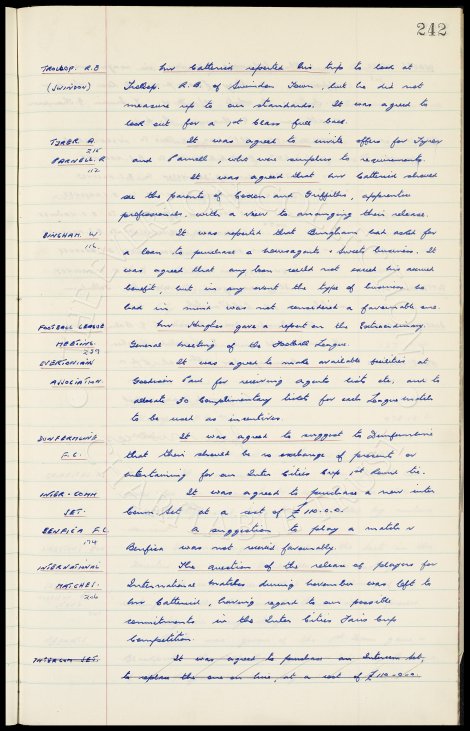 242
TROLLOP. R.B. Mr Catterick reported his trip to look at
(SWINDON) Trollop. R.B. of Swindon Town, but he did not
measure up to our standards. It was agreed to
look out for a 1st Class full back.
TYRER A. It was agreed to invite offers for Tyrer
215
PARNELL. R and Parnell, who were surplus to requirements.
112
It was agreed that Mr Catterick should
see the parents of and Griffiths, apprentice
professionals, with a view to arranging their release.
BINGHAM. W. It was reported that Bingham had asked for
116. a loan to purchase a newsagents & sweets business. It
was agreed that any loan could not exceed his accrued
benefit, but in any event the type of business he
had in mind was not considered a favourable one.
FOOTBALL LEAGUE Mr Hughes gave a report on the Extraordinary
MEETING. General Meeting of the Football League.
239
EVERTONIAN It was agreed to make available facilities at
ASSOCIATION Goodison Park for receiving agents lists etc, and to
allocate 30 complimentary tickets for each League match
to be used as incentives.
DUNFERMLINE It was agreed to suggest to Dunfermline
F.C. that there should be no exchange of presents or
entertaining for our Inter Cities Cup 1st Round tie.
INTER. COMM It was agreed to purchase a new inter
SET. Comm set at a cost of £110.0.0.
BENFICA F.C. A suggestion to play a match v
174 Benfica was not received favourably.
INTERNATIONAL The question of the release of players for
MATCHES. International Matches during November was left to
206 Mr Catterick, having regard to our possible
commitments in the Inter Cities Fairs Cup
Competition.
INTERCOM SET. It was agreed to purchase an Intercom set,
to replace the one on hire, at a cost of £110-0-0.